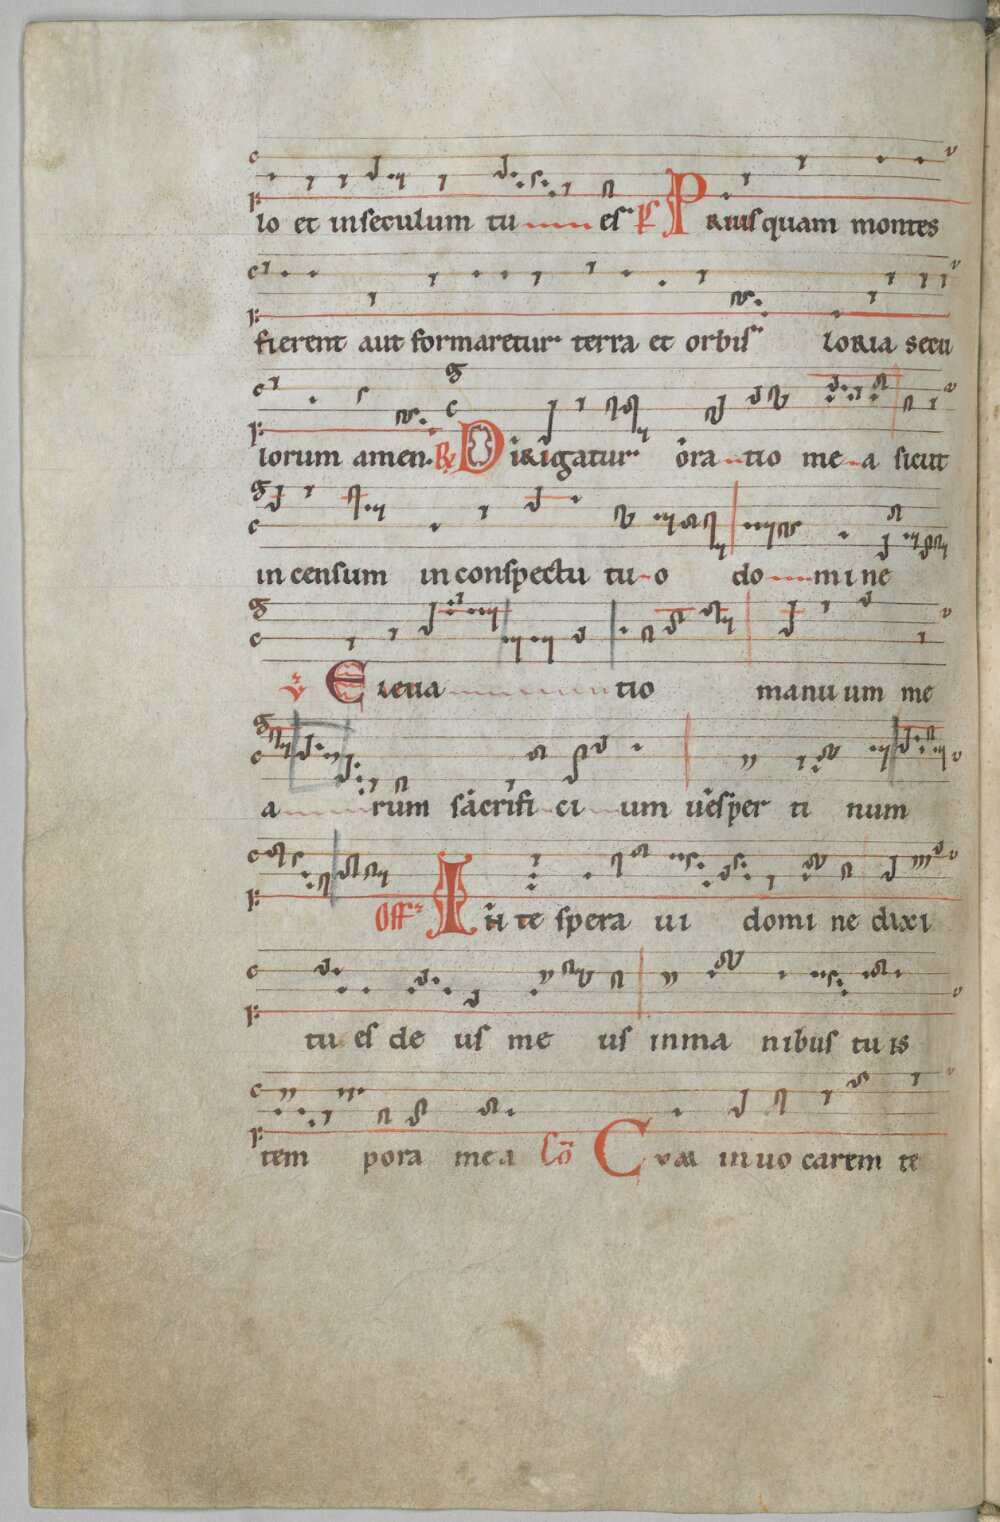 lo et in seculum tu es. Ps Priusquam montes
fierent aut formaretur terra et orbis loria secu
lorum amen. R Dirigatur oratio mea sicut
incensum in conspectu tuo domine
V Eleuatio manuum me
arum sacrificium uesper ti num
Off In te speraui domine dixi
tu es deus meus in manibus tuis
tempora mea Co Cum inuocarem te